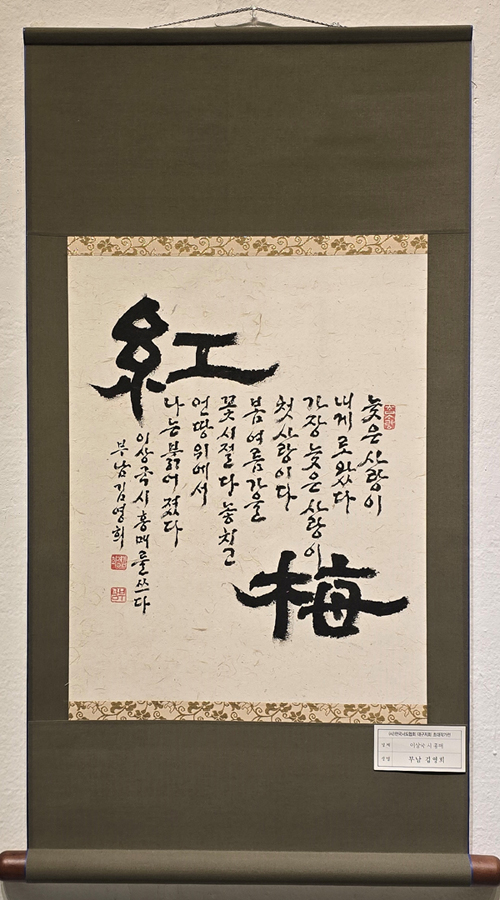 紅梅
늦은 사랑이
내게로 왔다
가장 늦은 사랑이
첫사랑이다
봄 여름 가을
꽃시절 다 놓치고
언땅 위에서
나는 붉어 졌다
이상국 시 홍매를 쓰다
부남 김영희
이상낙 시 홍매
부남 김영희